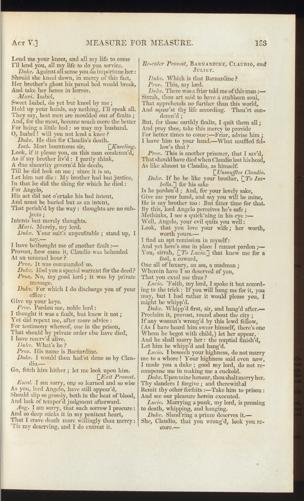 Act V.] MEASURE FOR MEASURE. 153
Lend me your knees, and all my life to come
I'll lend you, all my life to do you service.
Duke. Against all sense you do importune her:
Should she kneel down, in mercy of this fact,
Her brother's ghost his paved bed would break,
And take her hence in horror.
Mari. Isabel,
Sweet Isabel, do yet but kneel by me;
Hold up your hands, say nothing, I'll speak all.
They say, best men are moulded out of faults;
And, for the most, become much more the better
For being a little bad: so may my husband.
O, Isabel! will you not lend a knee?
Duke. He dies for Claudio's death.
Isab. Most bounteous sir, [Kneeling.
Look, if it please you, on this man condemn'd,
As if my brother liv'd: I partly think,
A due sincerity govern'd his deeds,
Till he did look on me; since it is so,
Let him not die: My brother had but justice,
In that he did the thing for which he died:
For Angelo,
His act did not o'ertake his bad intent,
And must be buried but as an intent,
That perish'd by the way: thoughts are no sub-
jects;
Intents but merely thoughts.
Mari. Merely, my lord.
Duke. Your suit's unprofitable; stand up, I
say.—
I have bethought me of another fault:—
Provost, how came it, Claudio was beheaded
At an unusual hour?
Prov. It was commanded so.
Duke. Had you a special warrant for the deed?
Prov. No, my good lord; it was by private
message.
Duke. For which I do discharge you of your
office:
Give up your keys.
Prov. Pardon me, noble lord:
I thought it was a fault, but knew it not;
Yet did repent me, after more advice:
For testimony whereof, one in the prison,
That should by private order else have died,
I have reserv'd alive.
Duke. What's he?
Prov. His name is Barnardine.
Duke. I would thou had'st done so by Clau-
dio.—
Go, fetch him hither; let me look upon him.
[Exit Provost.
Escal. I am sorry, one so learned and so wise
As you, lord Angelo, have still appear'd,
Should slip so grossly, both in the heat of blood,
And lack of temper'd judgment afterward.
Ang. I am sorry, that such sorrow I procure:
And so deep sticks it in my penitent heart,
That I crave death more willingly than mercy:
'Tis my deserving, and I do entreat it.
Re-enter Provost, Barnardine, Claudio, and
Juliet.
Duke. Which is that Barnardine?
Prov. This, my lord.
Duke. There was a friar told me of this man:—
Sirrah, thou art said to have a stubborn soul,
That apprehends no further than this world,
And squar'st thy life according. Thou'rt con-
demn'd;
But, for those earthly faults, I quit them all;
And pray thee, take this mercy to provide
For better times to come:—Friar, advise him;
I leave him to your hand.—What muffled fel-
low's that?
Prov. This is another prisoner, that I sav'd,
That should have died when Claudio lost his head,
As like almost to Claudio, as himself.
[Unmuffles Claudio.
Duke. If he be like your brother, [To Isa-
bella.] for his sake
Is he pardon'd; And, for your lovely sake,
Give me your hand, and say you will be mine,
He is my brother too: But fitter time for that.
By this, lord Angelo perceives he's safe;
Methinks, I see a quick'ning in his eye:—
Well, Angelo, your evil quits you well:
Look, that you love your wife; her worth,
worth yours.—
I find an apt remission in myself:
And yet here's one in place I cannot pardon;—
You, sirrah, [To Lucio.] that knew me for a
fool, a coward,
One all of luxury, an ass, a madman;
Wherein have I so deserved of you,
That you extol me thus?
Lucio. 'Faith, my lord, I spoke it but accord-
ing to the trick: If you will hang me for it, you
may, but I had rather it would please you, I
might be whipp'd.
Duke. Whipp'd first, sir, and hang'd after.—
Proclaim it, provost, round about the city;
If any woman's wrong'd by this lewd fellow,
(As I have heard him swear himself, there's one
Whom he begot with child,) let her appear,
And he shall marry her: the nuptial finish'd,
Let him be whipp'd and hang'd.
Lucio. I beseech your highness, do not marry
me to a whore! Your highness said even now,
I made you a duke; good my lord, do not re-
compense me in making me a cuckold.
Duke. Upon mine honour, thou shalt marry her.
Thy slanders I forgive; and therewithal
Remit thy other forfeits:—Take him to prison:
And see our pleasure herein executed.
Lucio. Marrying a punk, my lord, is pressing
to death, whipping, and hanging.
Duke. Sland'ring a prince deserves it.—
She, Claudio, that you wrong'd, look you re-
store.—